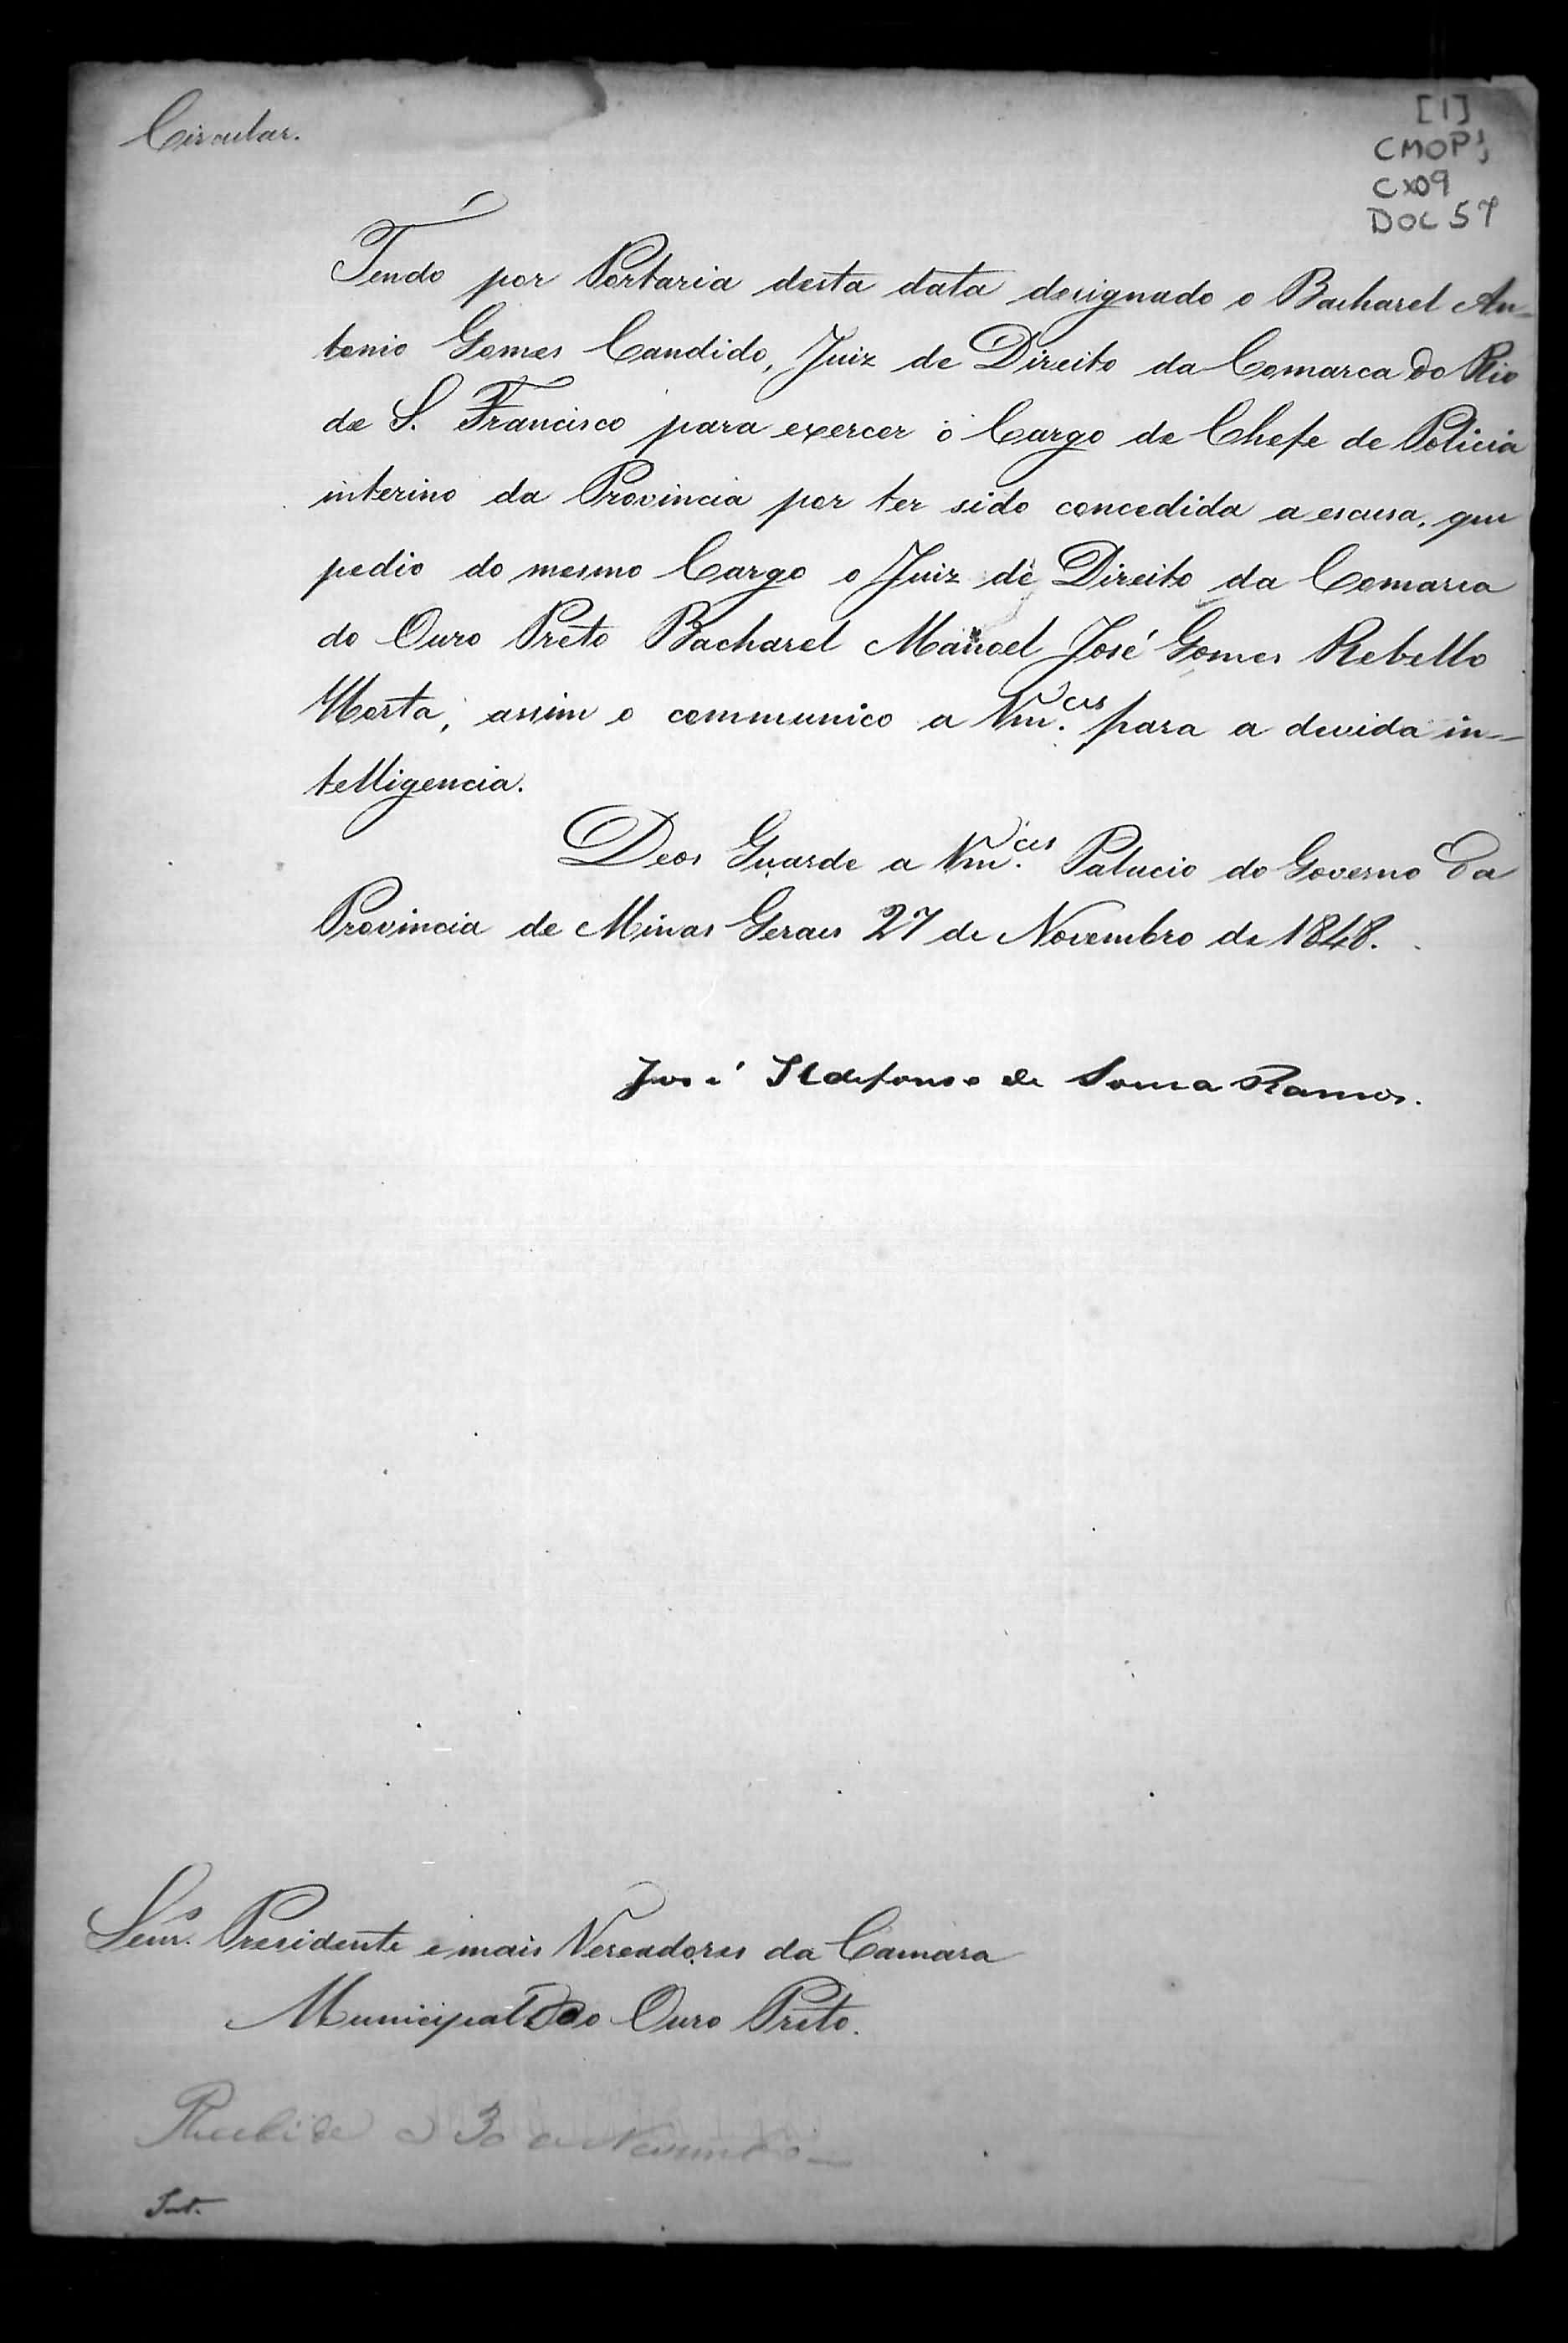 Circular.
[1]
CMOP
CX09
DOC 57
Tendo por Portaria desta data designado o Bacharel An-
tonio Gomes Candido, Juiz de Direito da Comarca do Rio
de S. Francisco para exercer o Cargo de Chefe de Policia
interino da Provincia por ter sido concedida a escusa, que
pedio do mesmo Cargo o Juiz de Direito da Comarca
do Ouro Preto Bacharel Manoel José Gomes Rebello
Horta, assim o communico a Vm.ces para a devida in-
telligencia.
Deos Guarde a Vm.ces Palacio do Governo da
Provincia de Minas Geraes 27 de Novembro de 1848.
José Ildefonso de Sousa Ramos.
Senr.s Presidente e mais Vereadores da Camara
Municipal do Ouro Preto.
Recebido a 30 de Novembro